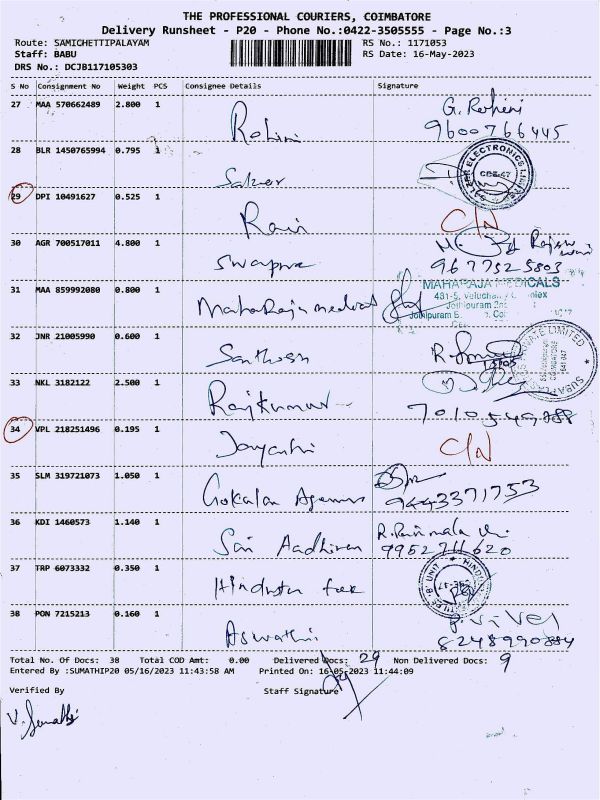 THE PROFESSIONAL COURIERS, COIMBATORE
Delivery Runsheet - P20 - Phone No.:0422-3505555 - Page No.:3
Route: SAMICHETTIPALAYAM RS No.: 1171053
Staff: BABU RS Date: 16-May-2023
DRS No.: DCJB117105303
S No Consignment No Weight PCS Consignee Details Signature
27 MAA 570662489 2.800 1 Rohini G. Rohini
9600766445
28 BLR 1450765994 0.795 1 ELECTRONICS
29 DPI 10491627 0.525 1 C/N
30 AGR 700517011 4.800 1 Swapna
9677525803
31 MAA 859992080 0.800 1 Maharaja medical MAHARAJA MEDICALS
32 JNR 21005990 0.600 1 Santhosh
33 NKL 3182122 2.500 1 Rajkumar
34 VPL 218251496 0.195 1 Jayanthi C/N
35 SLM 319721073 1.050 1 Gokalan
9443371753
36 KDI 1460573 1.140 1 Sai Aadhiran
9952711620
37 TRP 6073332 0.350 1
38 PON 7215213 0.160 1 Aswathi
8248990884
Total No. Of Docs: 38 Total COD Amt: 0.00 Delivered Docs: 29 Non Delivered Docs: 9
Entered By :SUMATHIP20 05/16/2023 11:43:58 AM Printed On: 16-05-2023 11:44:09
Verified By Staff Signature
V. Sumathi